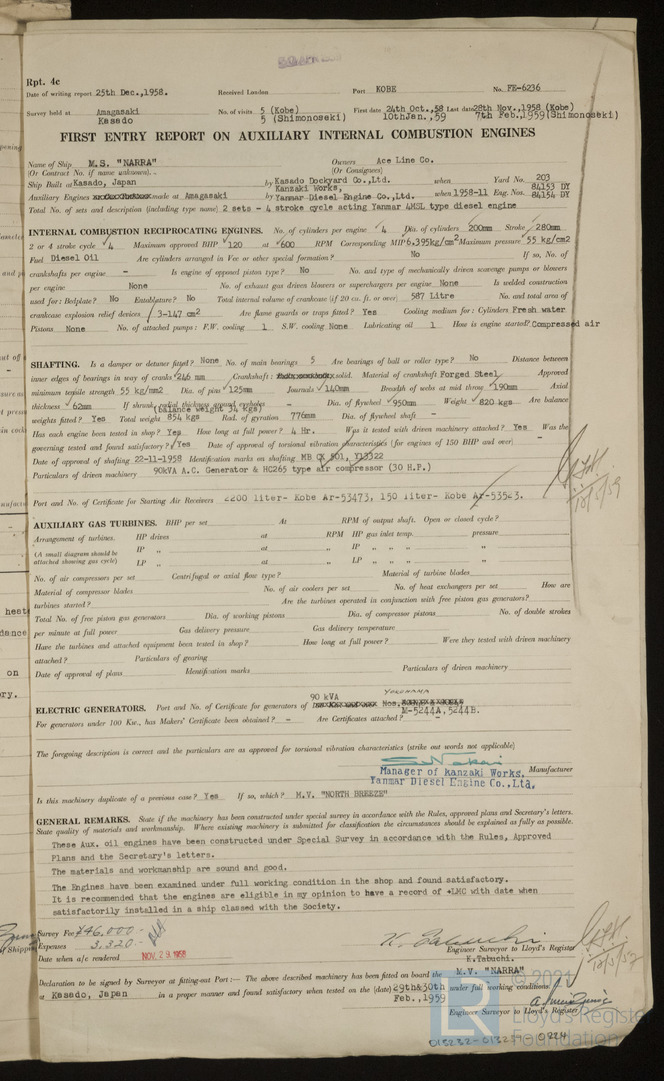 Rpt. 4c
Date of writing report 25th Dec.,1958. Received London Port KOBE No. FE-6236
Survey held at Amagasaki Kasado No. of visits 5 (Kobe) 5 (Shimonoseki) First date 24th Oct.,58 10th Jan.,59 Last date 28th Nov.,1958 (Kobe) 7th Feb.,1959 (Shimonoseki)
FIRST ENTRY REPORT ON AUXILIARY INTERNAL COMBUSTION ENGINES
Name of Ship M.S. "NARRA" Owners Ace Line Co.
(Or Contract No. if name unknown) (Or Consignees)
Ship Built at Kasado, Japan by Kasado Dockyard Co.,Ltd. when Yard No. 203
Auxiliary Engines made at Amagasaki by Kanzaki Works, Yanmar Diesel Engine Co.,Ltd. when 1958-11 Eng. Nos. 84153 DY 84154 DY
Total No. of sets and description (including type name) 2 sets - 4 stroke cycle acting Yanmar 4MSL type diesel engine
INTERNAL COMBUSTION RECIPROCATING ENGINES. No. of cylinders per engine 4 Dia. of cylinders 200mm Stroke 280mm
2 or 4 stroke cycle 4 Maximum approved BHP 120 at 600 RPM Corresponding MIP 6.395kg/cm2 Maximum pressure 55 kg/cm2
Fuel Diesel Oil Are cylinders arranged in Vee or other special formation? No If so, No. of
crankshafts per engine - Is engine of opposed piston type? No No. and type of mechanically driven scavenge pumps or blowers
per engine None No. of exhaust gas driven blowers or superchargers per engine None Is welded construction
used for: Bedplate? No Entablature? No Total internal volume of crankcase (if 20 cu. ft. or over) 587 Litre No. and total area of
crankcase explosion relief devices 3-147 cm2 Are flame guards or traps fitted? Yes Cooling medium for: Cylinders Fresh water
Pistons None No. of attached pumps: F.W. cooling 1 S.W. cooling None Lubricating oil 1 How is engine started? Compressed air
SHAFTING. Is a damper or detuner fitted? None No. of main bearings 5 Are bearings of ball or roller type? No Distance between
inner edges of bearings in way of cranks 246 mm Crankshaft: solid. Material of crankshaft Forged Steel Approved
minimum tensile strength 55 kg/mm2 Dia. of pins 125mm Journals 140mm Breadth of webs at mid throw 190mm Axial
thickness 62mm If shrunk, radial thickness around eyeholes - Dia. of flywheel 950mm Weight 820 kgs Are balance
weights fitted? Yes Total weight (balance weight 34 kgs) 854 kgs Rad. of gyration 776mm Dia. of flywheel shaft -
Has each engine been tested in shop? Yes How long at full power? 4 Hr. Was it tested with driven machinery attached? Yes Was the
governing tested and found satisfactory? Yes Date of approval of torsional vibration characteristics (for engines of 150 BHP and over) -
Date of approval of shafting 22-11-1958 Identification marks on shafting
Particulars of driven machinery 90kVA A.C. Generator & HC265 type air compressor (30 H.P.)
Port and No. of Certificate for Starting Air Receivers 2200 liter- Kobe Ar-53473, 150 liter- Kobe Ar-53523.
AUXILIARY GAS TURBINES. BHP per set At RPM of output shaft. Open or closed cycle?
Arrangement of turbines. HP drives at RPM HP gas inlet temp. pressure
(A small diagram should be attached showing gas cycle) IP „ at „ IP „ „ „ „
LP „ at „ LP „ „ „ „
No. of air compressors per set Centrifugal or axial flow type? Material of turbine blades
Material of compressor blades No. of air coolers per set No. of heat exchangers per set How are
turbines started? Are the turbines operated in conjunction with free piston gas generators?
Total No. of free piston gas generators Dia. of working pistons Dia. of compressor pistons No. of double strokes
per minute at full power Gas delivery pressure Gas delivery temperature
Have the turbines and attached equipment been tested in shop? How long at full power? Were they tested with driven machinery
attached? Particulars of gearing
Date of approval of plans Identification marks Particulars of driven machinery
ELECTRIC GENERATORS. Port and No. of Certificate for generators of 90 kVA Nos. YOKOHAMA M-5244A, 5244B.
For generators under 100 Kw., has Makers' Certificate been obtained? - Are Certificates attached? -
The foregoing description is correct and the particulars are as approved for torsional vibration characteristics (strike out words not applicable)
Manager of Kanzaki Works. Manufacturer
Yanmar Diesel Engine Co.,Ltd.
Is this machinery duplicate of a previous case? Yes If so, which? M.V. "NORTH BREEZE"
GENERAL REMARKS. State if the machinery has been constructed under special survey in accordance with the Rules, approved plans and Secretary's letters.
State quality of materials and workmanship. Where existing machinery is submitted for classification the circumstances should be explained as fully as possible.
These Aux. oil engines have been constructed under Special Survey in accordance with the Rules, Approved
Plans and the Secretary's letters.
The materials and workmanship are sound and good.
The Engines have been examined under full working condition in the shop and found satisfactory.
It is recommended that the engines are eligible in my opinion to have a record of +LMC with date when
satisfactorily installed in a ship classed with the Society.
Survey Fee ¥46,000-
Expenses 3,320-
Date when a/c rendered NOV. 29 1958
Engineer Surveyor to Lloyd's Register
K.Tabuchi.
Declaration to be signed by Surveyor at fitting-out Port:— The above described machinery has been fitted on board the M.V. "NARRA"
at Kasado, Japan in a proper manner and found satisfactory when tested on the (date) 29th&30th Feb.,1959 under full working conditions
Engineer Surveyor to Lloyd's Register
© 2021
LR
Lloyd's Register
Foundation